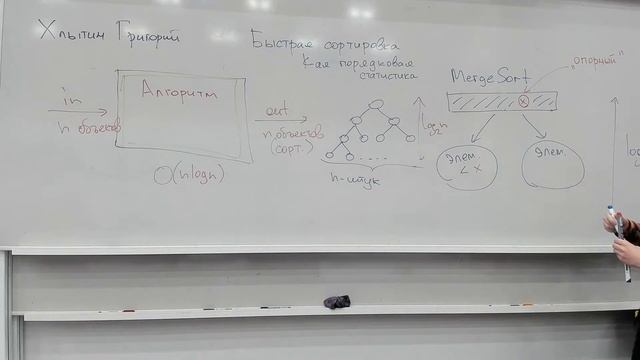 Хлытин Григорий
Быстрая сортировка
Как порядковая
статистика
"опорный"
in
n объектов
Алгоритм
O(nlogn)
out
n объектов
(сорт.)
log₂n
n-штук
MergeSort
x
элем.
< x
элем.